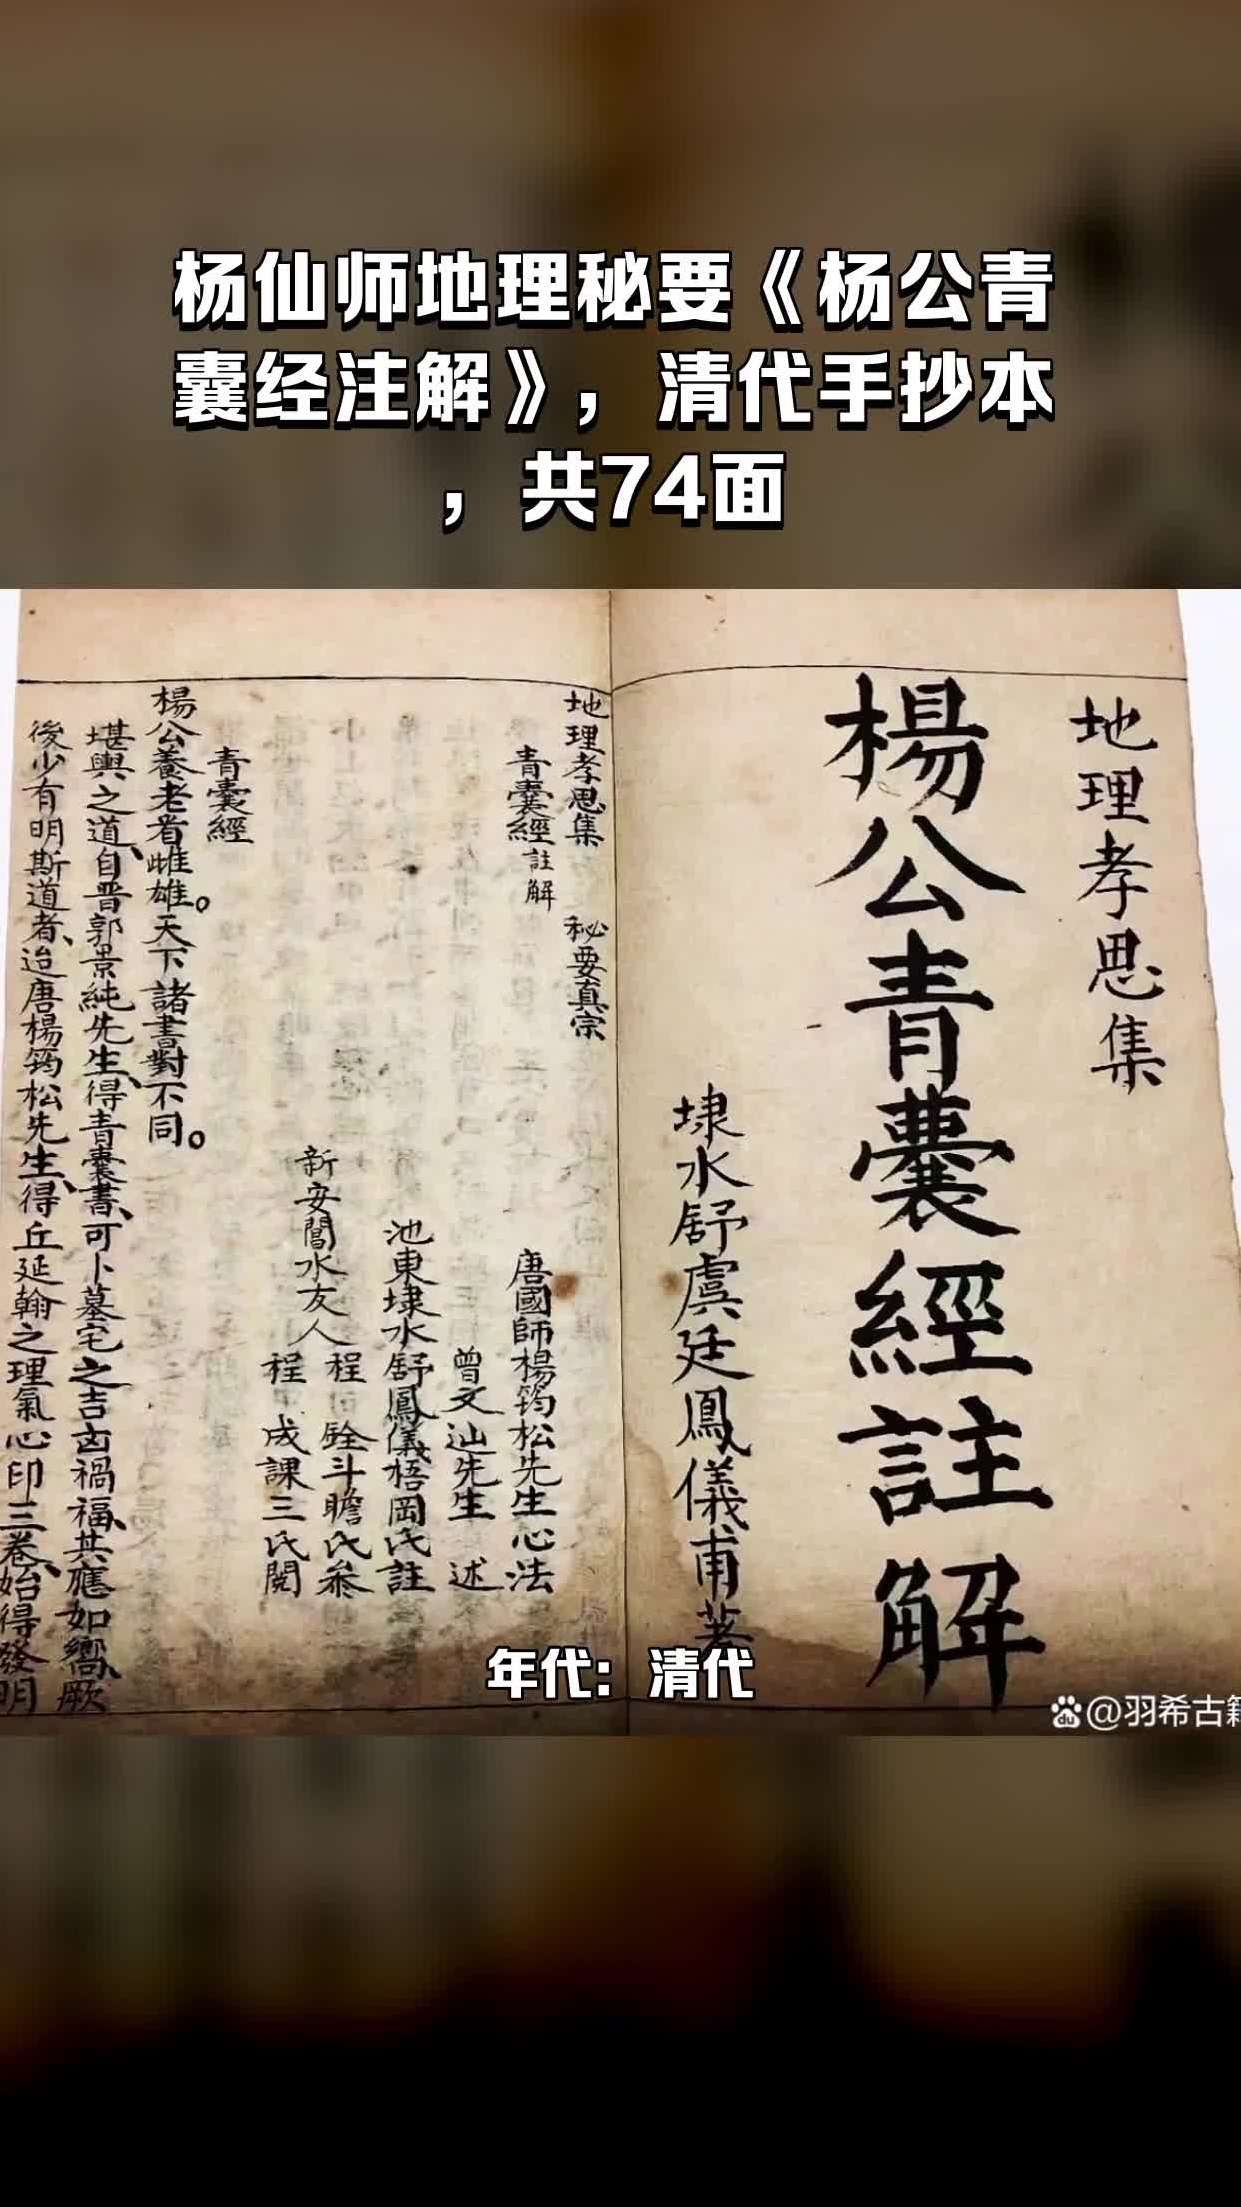 杨仙师地理秘要《杨公青
囊经注解》，清代手抄本
，共74面
地理孝思集
楊公青囊經註解
埭水舒虞廷鳳儀甫著
地理孝思集 秘要真宗
青囊經註解
唐國師楊筠松先生心法
曾文辿先生 述
池東埭水舒鳳儀梧岡氏註
新安閶水友人 程 銓斗瞻氏叅
程 成課三氏閱
青囊經
楊公養老看雌雄。天下諸書對不同。
堪輿之道、自晋郭景純先生、得青囊書、可卜墓宅之吉凶禍福、其應如嚮、厥
後少有明斯道者、迨唐楊筠松先生、得丘延翰之理氣心印三卷、始得發明
年代：清代
du@羽希古籍